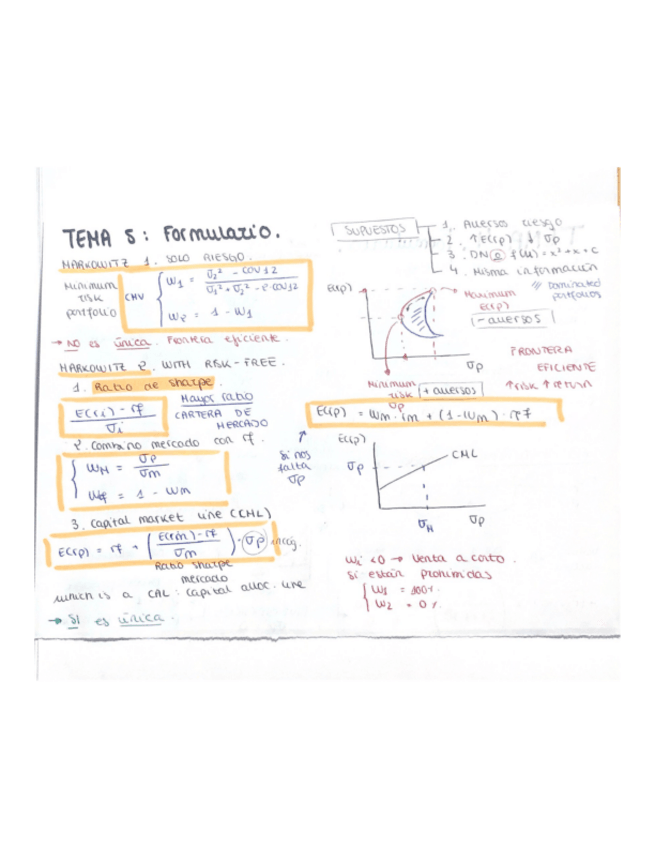 TEMA 5: Formulario.
MARKOWITZ 1. SOLO RIESGO.
Minimum risk portfolio
CMV
W1 = σ2² - COV12 / σ1² + σ2² - 2·COV12
W2 = 1 - W1
→ NO es única. Frontera eficiente.
MARKOWITZ 2. WITH RISK-FREE.
1. Ratio de sharpe.
E(ri) - rf / σi
Mayor ratio
CARTERA DE MERCADO
2. Combino mercado con rf.
WM = σp / σm
Wrf = 1 - Wm
si nos falta σp
3. Capital market line (CML)
E(rp) = rf + (E(rm) - rf / σm) · σp incóg.
Ratio sharpe mercado
which is a CAL: capital alloc. line
→ SI es única.
SUPUESTOS
1. Aversos riesgo
2. ↑E(rp) ↓ σp
3. DN f(u) = x² + x + c
4. Misma información
E(rp)
Dominated portfolios
Maximum E(rp)
- aversos
σp
FRONTERA EFICIENTE
↑risk ↑return
Minimum risk σp
+ aversos
E(rp) = Wm · rm + (1 - Wm) · rf
E(rp)
CML
σp
σM
σp
Wi < 0 → Venta a corto.
Si están prohibidas
W1 = 100%
W2 = 0%